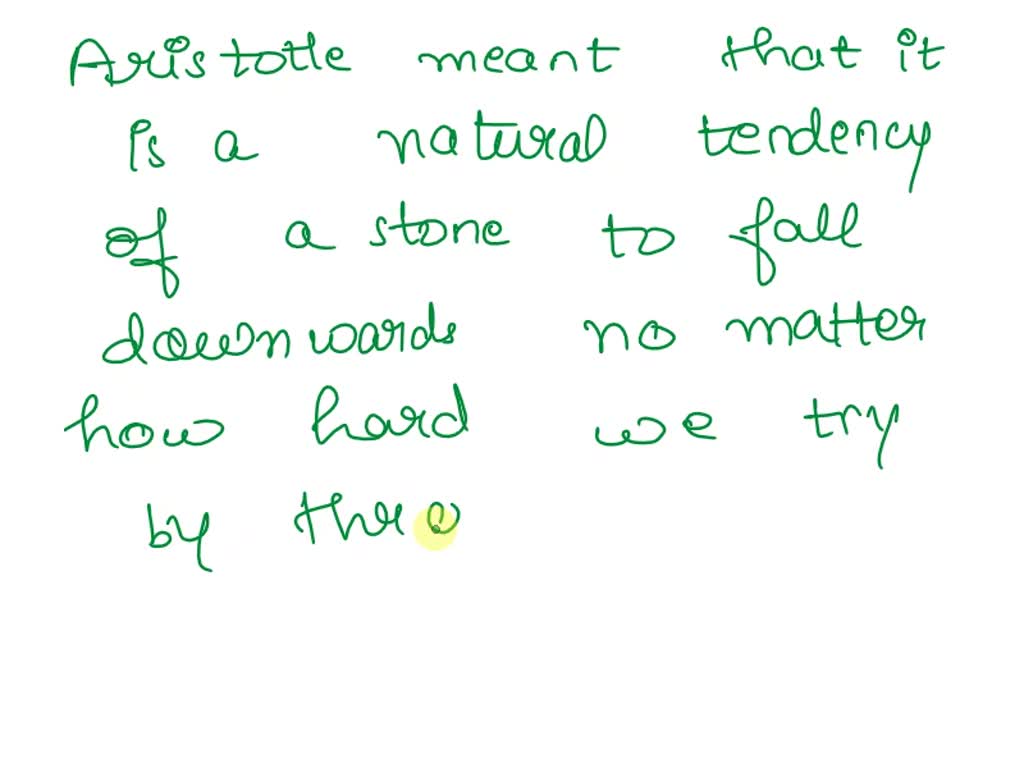 Aristotle meant that it
is a natural tendency
of a stone to fall
downwards no matter
how hard we try
by thro